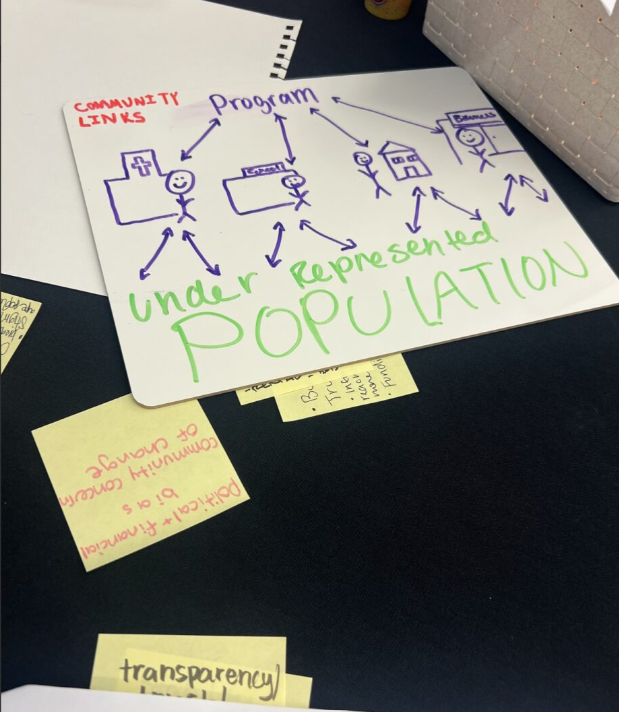 COMMUNITY
LINKS
Program
School
Business
under Represented
POPULATION
political + financial
bias
community concern
of change
transparency/